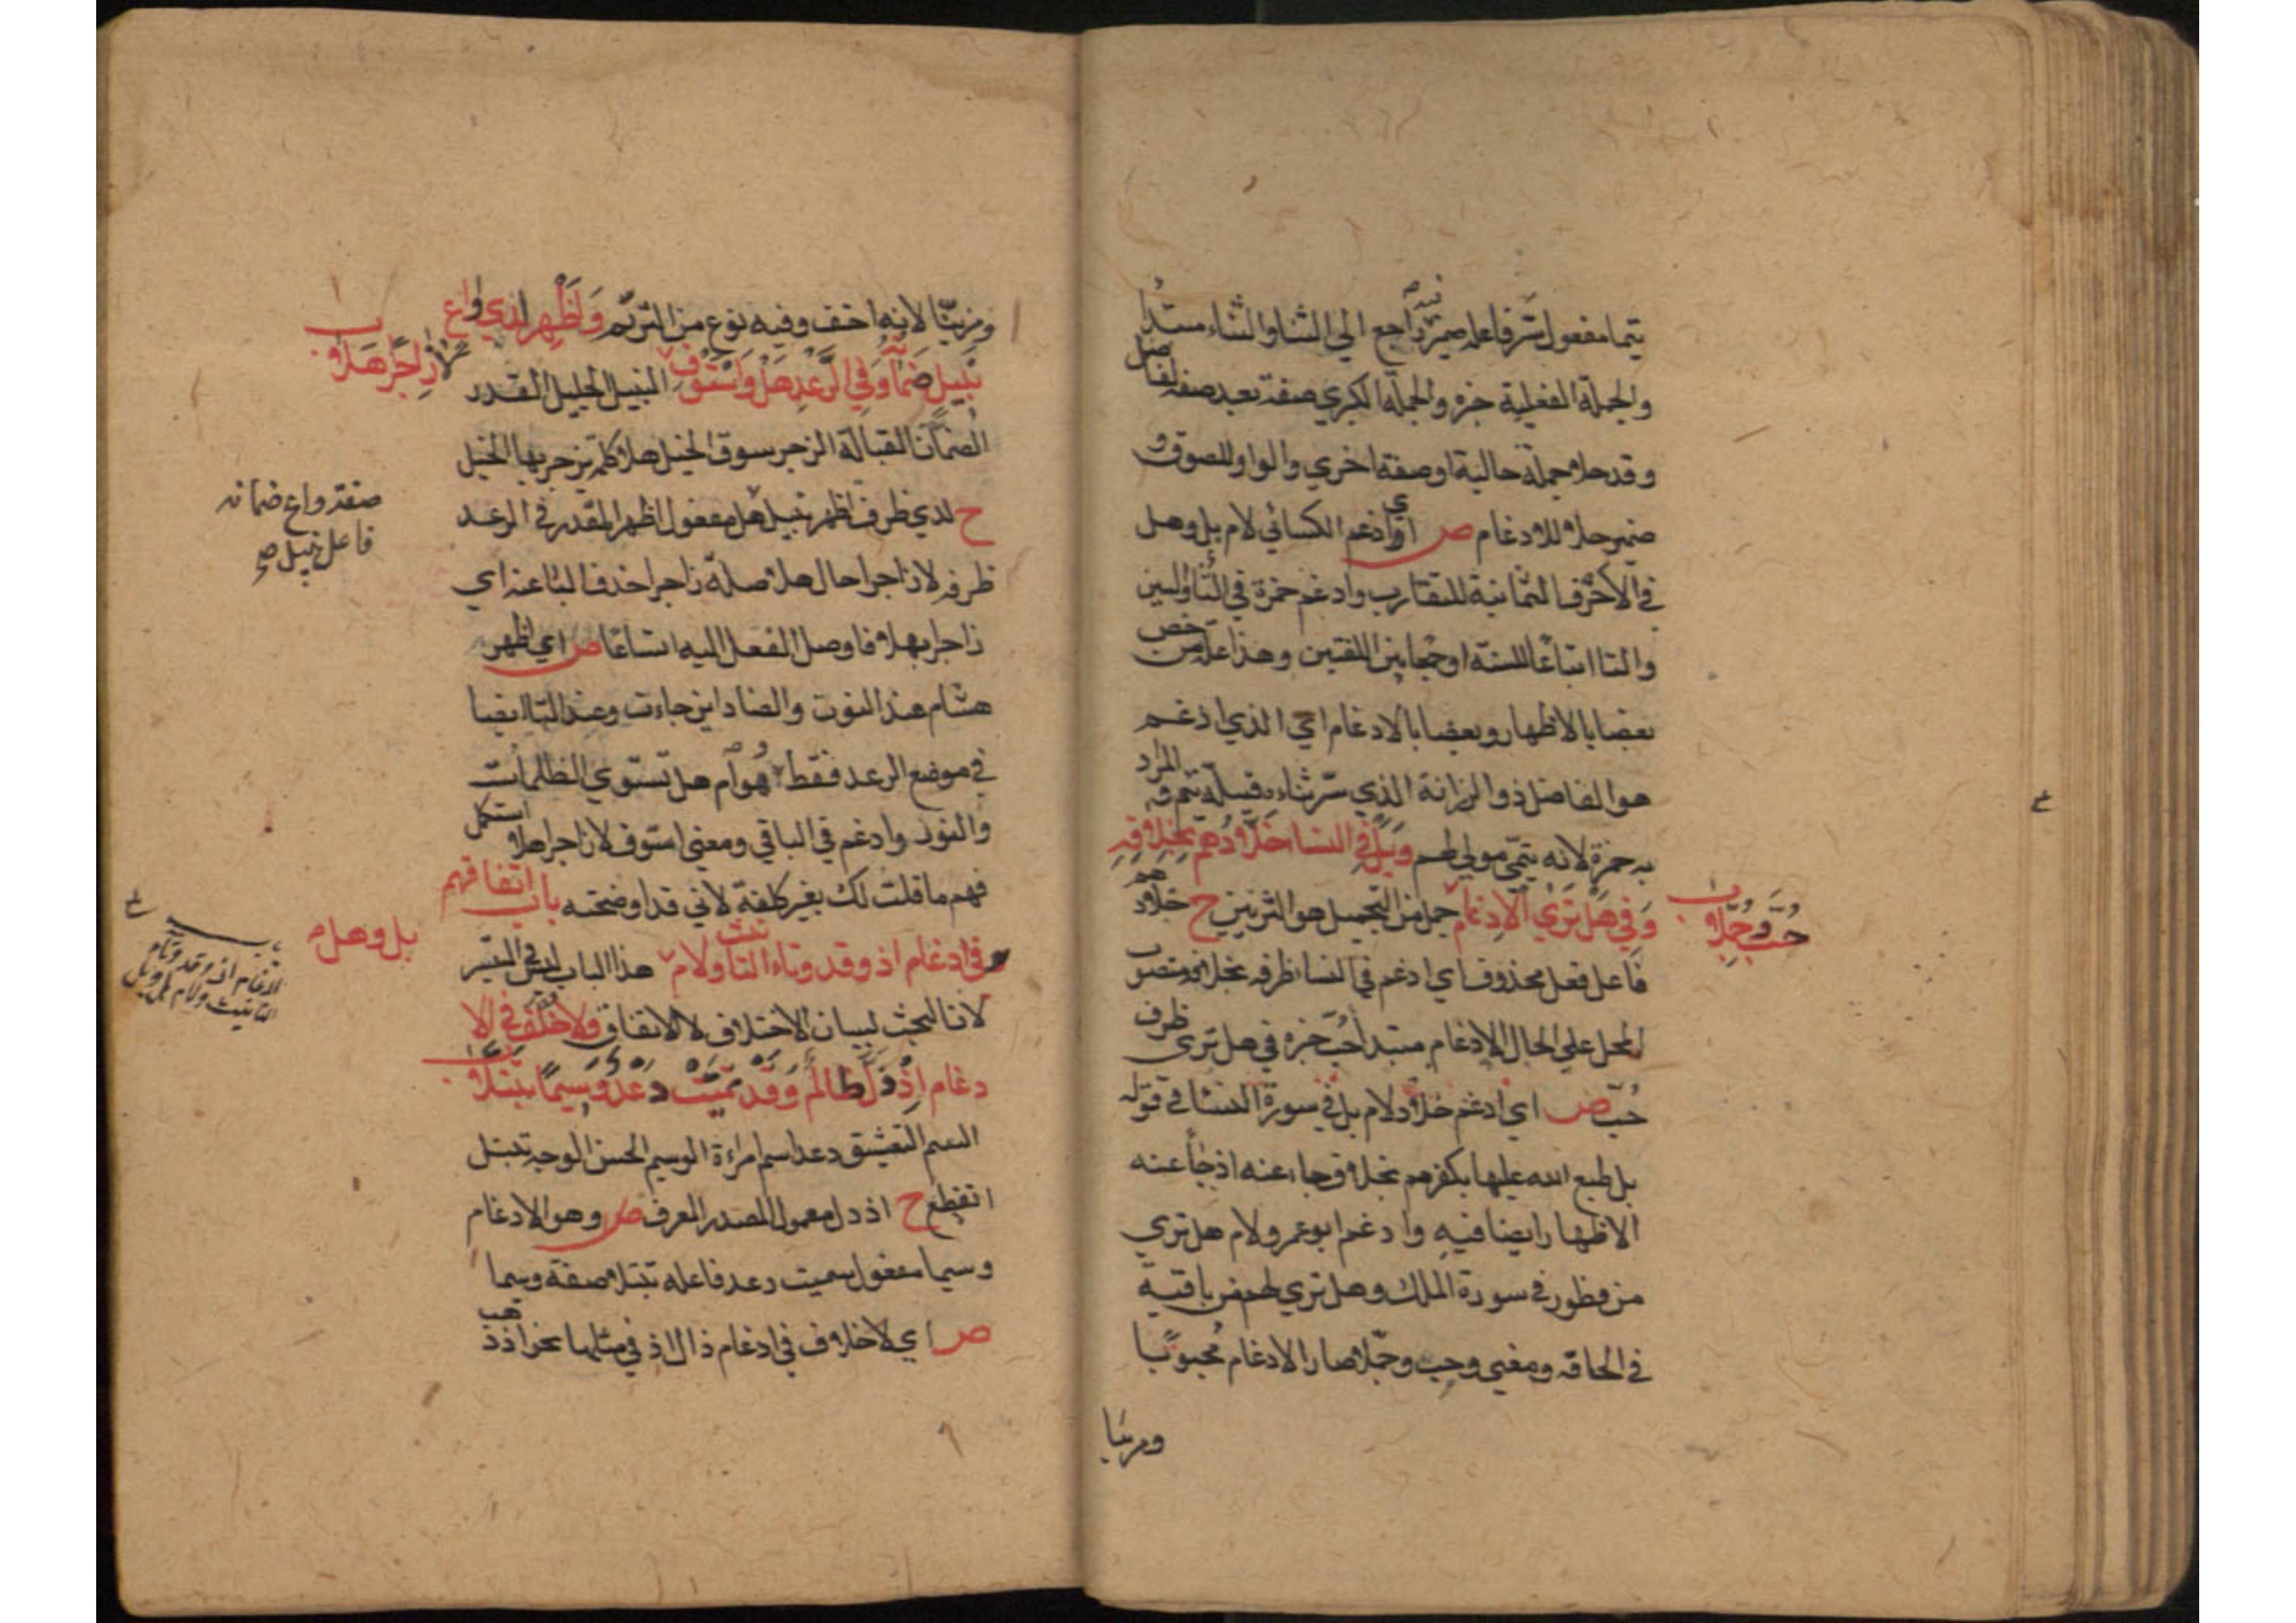 تيما مفعول سر فاعله ضميره راجع الي الثنا والثناء مبتدأ
والجملة الفعلية خبره والجملة الكبري صفة بعد صفة لفاضل
وقد حلا جملة حالية او صفة اخري والواو للصوق و
ضمير حلا للادغام ص اي وادغم الكسائي لام بل وهل
في الاحرف الثمانية للتقارب وادغم حمزة في الثا والسين
والتا اتباعا للسنة او جمعا بين اللغتين وهذا علة من خص
بعضا بالاظهار وبعضا بالادغام اي الذي ادغم
هو الفاضل ذو الرزانة الذي سر ثناءه قبيلة تيم والمراد
به حمزة لانه تيمي مولي لهم وبل في النسا خلادهم بخلافه
وفي هل تري الادغام حب وحملا
حمل من التجميل هو التزيين ح خلادهم
فاعل فعل محذوف اي ادغم في النسا ظرفه بخلافه منصوب
المحل علي الحال الادغام مبتدأ حب خبره في هل تري ظرف
حب ص اي ادغم خلاد لام بل في سورة النسا في قوله
بل طبع الله عليها بكفرهم بخلاف جاء عنه اذ جاء عنه
الاظهار ايضا فيه وادغم ابو عمرو لام هل تري
من فطور في سورة الملك وهل تري لهم من باقية
في الحاقه ومعني وحب وحملا صار الادغام محبوبا
ومزينا
ومزينا لانه اخف وفيه نوع من الترنم واظهر لدي واع
نبيل ضمانه وفي الرعد هل واستوف لا زاجرا هلا
النبيل الجليل القدر
الضمان القبالة الزجر سوق الخيل هلا كلمة يزجر بها الخيل
ح لدي ظرف اظهر نبيل هل مفعول اظهر المقدر في الرعد
صفة واع ضمانه
فاعل نبيل صح
ظرفه لا زاجرا حال هلا صلة زاجرا حذف البا عنه اي
زاجرا بهلا فاوصل الفعل اليه اتساعا ص اي اظهر
هشام عند النون والضاد اين جاءت وعند التا ايضا
في موضع الرعد فقط هو ام هل تستوي الظلمات
والنور وادغم في الباقي ومعني استوف لا زاجرا هلا استكمل
فهم ما قلت لك بغير كلفة لاني قد اوضحته باب اتفاقهم
في ادغام اذ وقد وتاء التانيث ولام بل وهل
هذا الباب ليس في التيسير
لان البحث لبيان الاختلاف لا الاتفاق ولا خلف في الا
دغام اذ ذل ظالم وقد تيمت دعد وسيما تبتلا
التيم التعشيق دعد اسم امراءة الوسيم الحسن الوجه تبتل
انقطع ح اذ ذل معمول المصدر المعرف ص وهو الادغام
وسيما مفعول تيمت دعد فاعله تبتلا صفة وسيما
ص اي لا خلاف في ادغام ذال اذ في مثلها نحو اذ ذهب